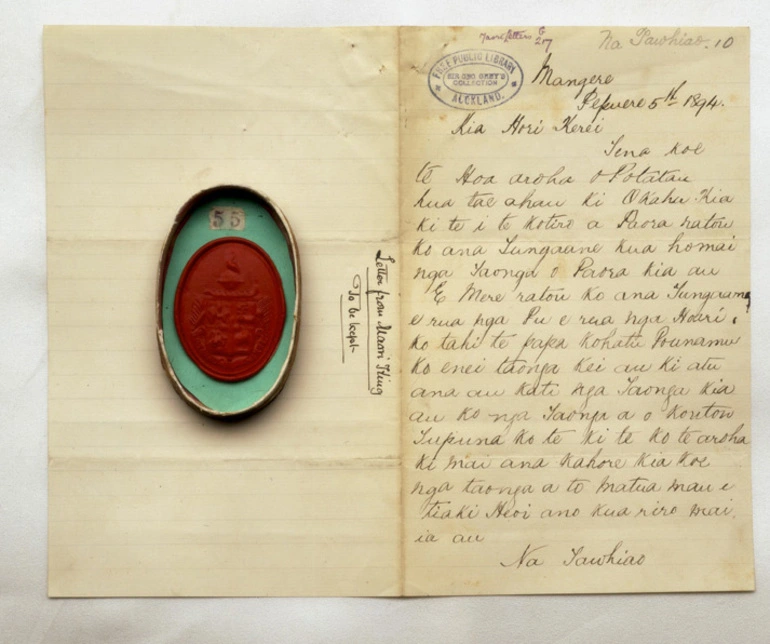 55
Letter from Maori King
To be kept
207
Na Tawhiao. 10
FREE PUBLIC LIBRARY
SIR GEO GREY'S
COLLECTION
AUCKLAND.
Mangere
Pepuere 5th 1894.
Kia Hori Kerei
Tena koe
te Hoa aroha o Potatau
kua tae ahau ki Okahu Kia
ki te i te kotiro a Paora ratou
ko ana Tungaane kua homai
nga Taonga o Paora kia au
E Mere ratou ko ana Tungaane
e rua nga Pu e rua nga Hoari.
ko tahi te papa kohatu Pounamu
ko enei taonga kei au ki atu
ana au kati nga Taonga kia
au ko nga Taonga a o koutou
Tupuna ko te ki te ko te aroha
ki mai ana kahore kia koe
nga taonga a to matua mau e
tiaki Heoi ano kua riro mai
ia au
Na Tawhiao